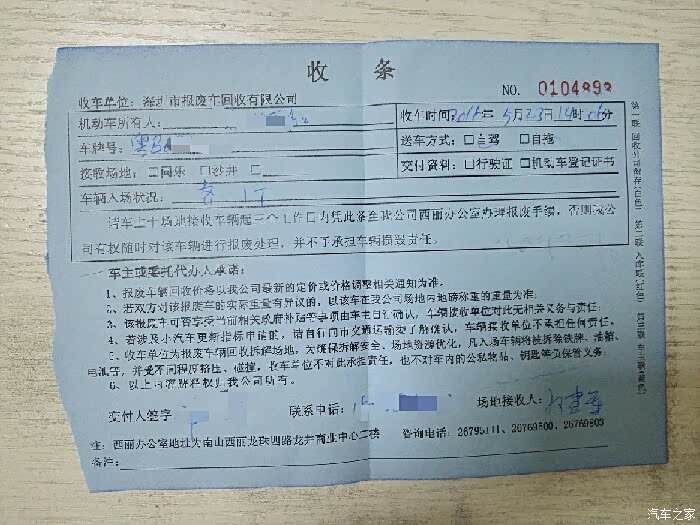 收 条
NO. 0104893
收车单位：深圳市报废车回收有限公司
机动车所有人：
收车时间 年 5月23日14时 分
车牌号：粤B
送车方式：□自驾 □自拖
接收场地：□同乐 □沙井 □
交付资料：□行驶证 □机动车登记证书
车辆入场状况：
请车主于场地接收车辆起三个工作日内凭此条至我公司西丽办公室办理报废手续，否则我公
司有权随时对该车辆进行报废处理，并不予承担车辆损毁责任。
车主或委托代办人承诺：
1、报废车辆回收价格以我公司最新的定价或价格调整相关通知为准。
2、若双方对该报废车的实际重量有异议的，以该车在我公司场内地磅称的重量为准；
3、该报废车可否享受当前相关政府补贴等事项由车主自行确认，车辆接收单位对此无相关义务与责任；
4、若涉及小汽车更新指标申请的，请自行向市交通运输委了解确认，车辆接收单位不承担任何责任。
5、收车单位为报废车辆回收拆解场地，为确保拆解安全、场地资源优化，凡入场车辆将被拆除铁牌、油箱、
电瓶管，并受不同程度挤压、碰撞，收车单位不对此承担责任，也不对车内的公私物品、钥匙等负保管义务；
6、以上内容解释权归我公司所有。
交付人签字
联系电话：
场地接收人：
注：西丽办公室地址为南山西丽龙珠四路龙井商业中心二楼 咨询电话：26795111、26769800、26769803
备注：
第一联 回收公司留存(白色) 第二联 入库联(红色) 第三联 车主联(蓝色)
汽车之家